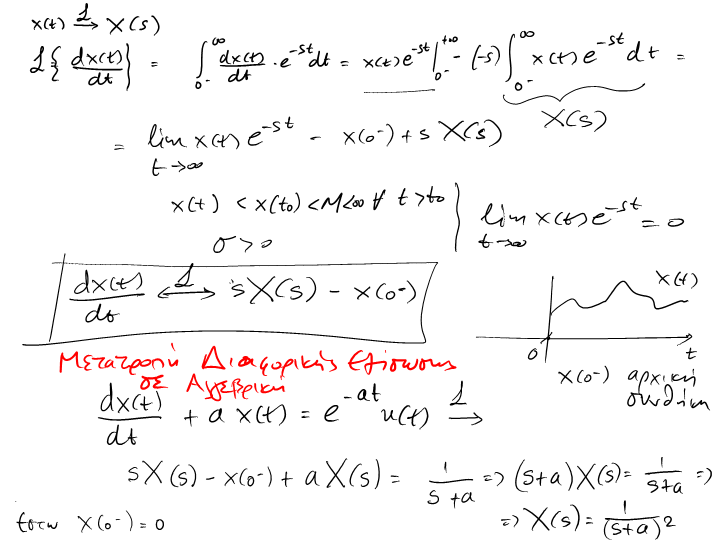 x(t) ℒ→ X(s)
ℒ{ dx(t)/dt } = ∫_{0-}^{∞} dx(t)/dt · e^{-st} dt = x(t) e^{-st} |_{0-}^{+∞} - (-s) ∫_{0-}^{∞} x(t) e^{-st} dt =
X(s)
= lim_{t→∞} x(t) e^{-st} - x(0-) + s X(s)
x(t) < x(t0) < M < ∞ ∀ t > t0
σ > 0
lim_{t→∞} x(t) e^{-st} = 0
dx(t)/dt ℒ↔ sX(s) - x(0-)
x(t)
0 t
x(0-) αρχική συνθήκη
Μετατροπή Διαφορικής Εξίσωσης
σε Αλγεβρική
dx(t)/dt + a x(t) = e^{-at} u(t) ℒ→
sX(s) - x(0-) + a X(s) = 1/(s+a) => (s+a)X(s) = 1/(s+a) =>
έστω X(0-) = 0
=> X(s) = 1/(s+a)^2